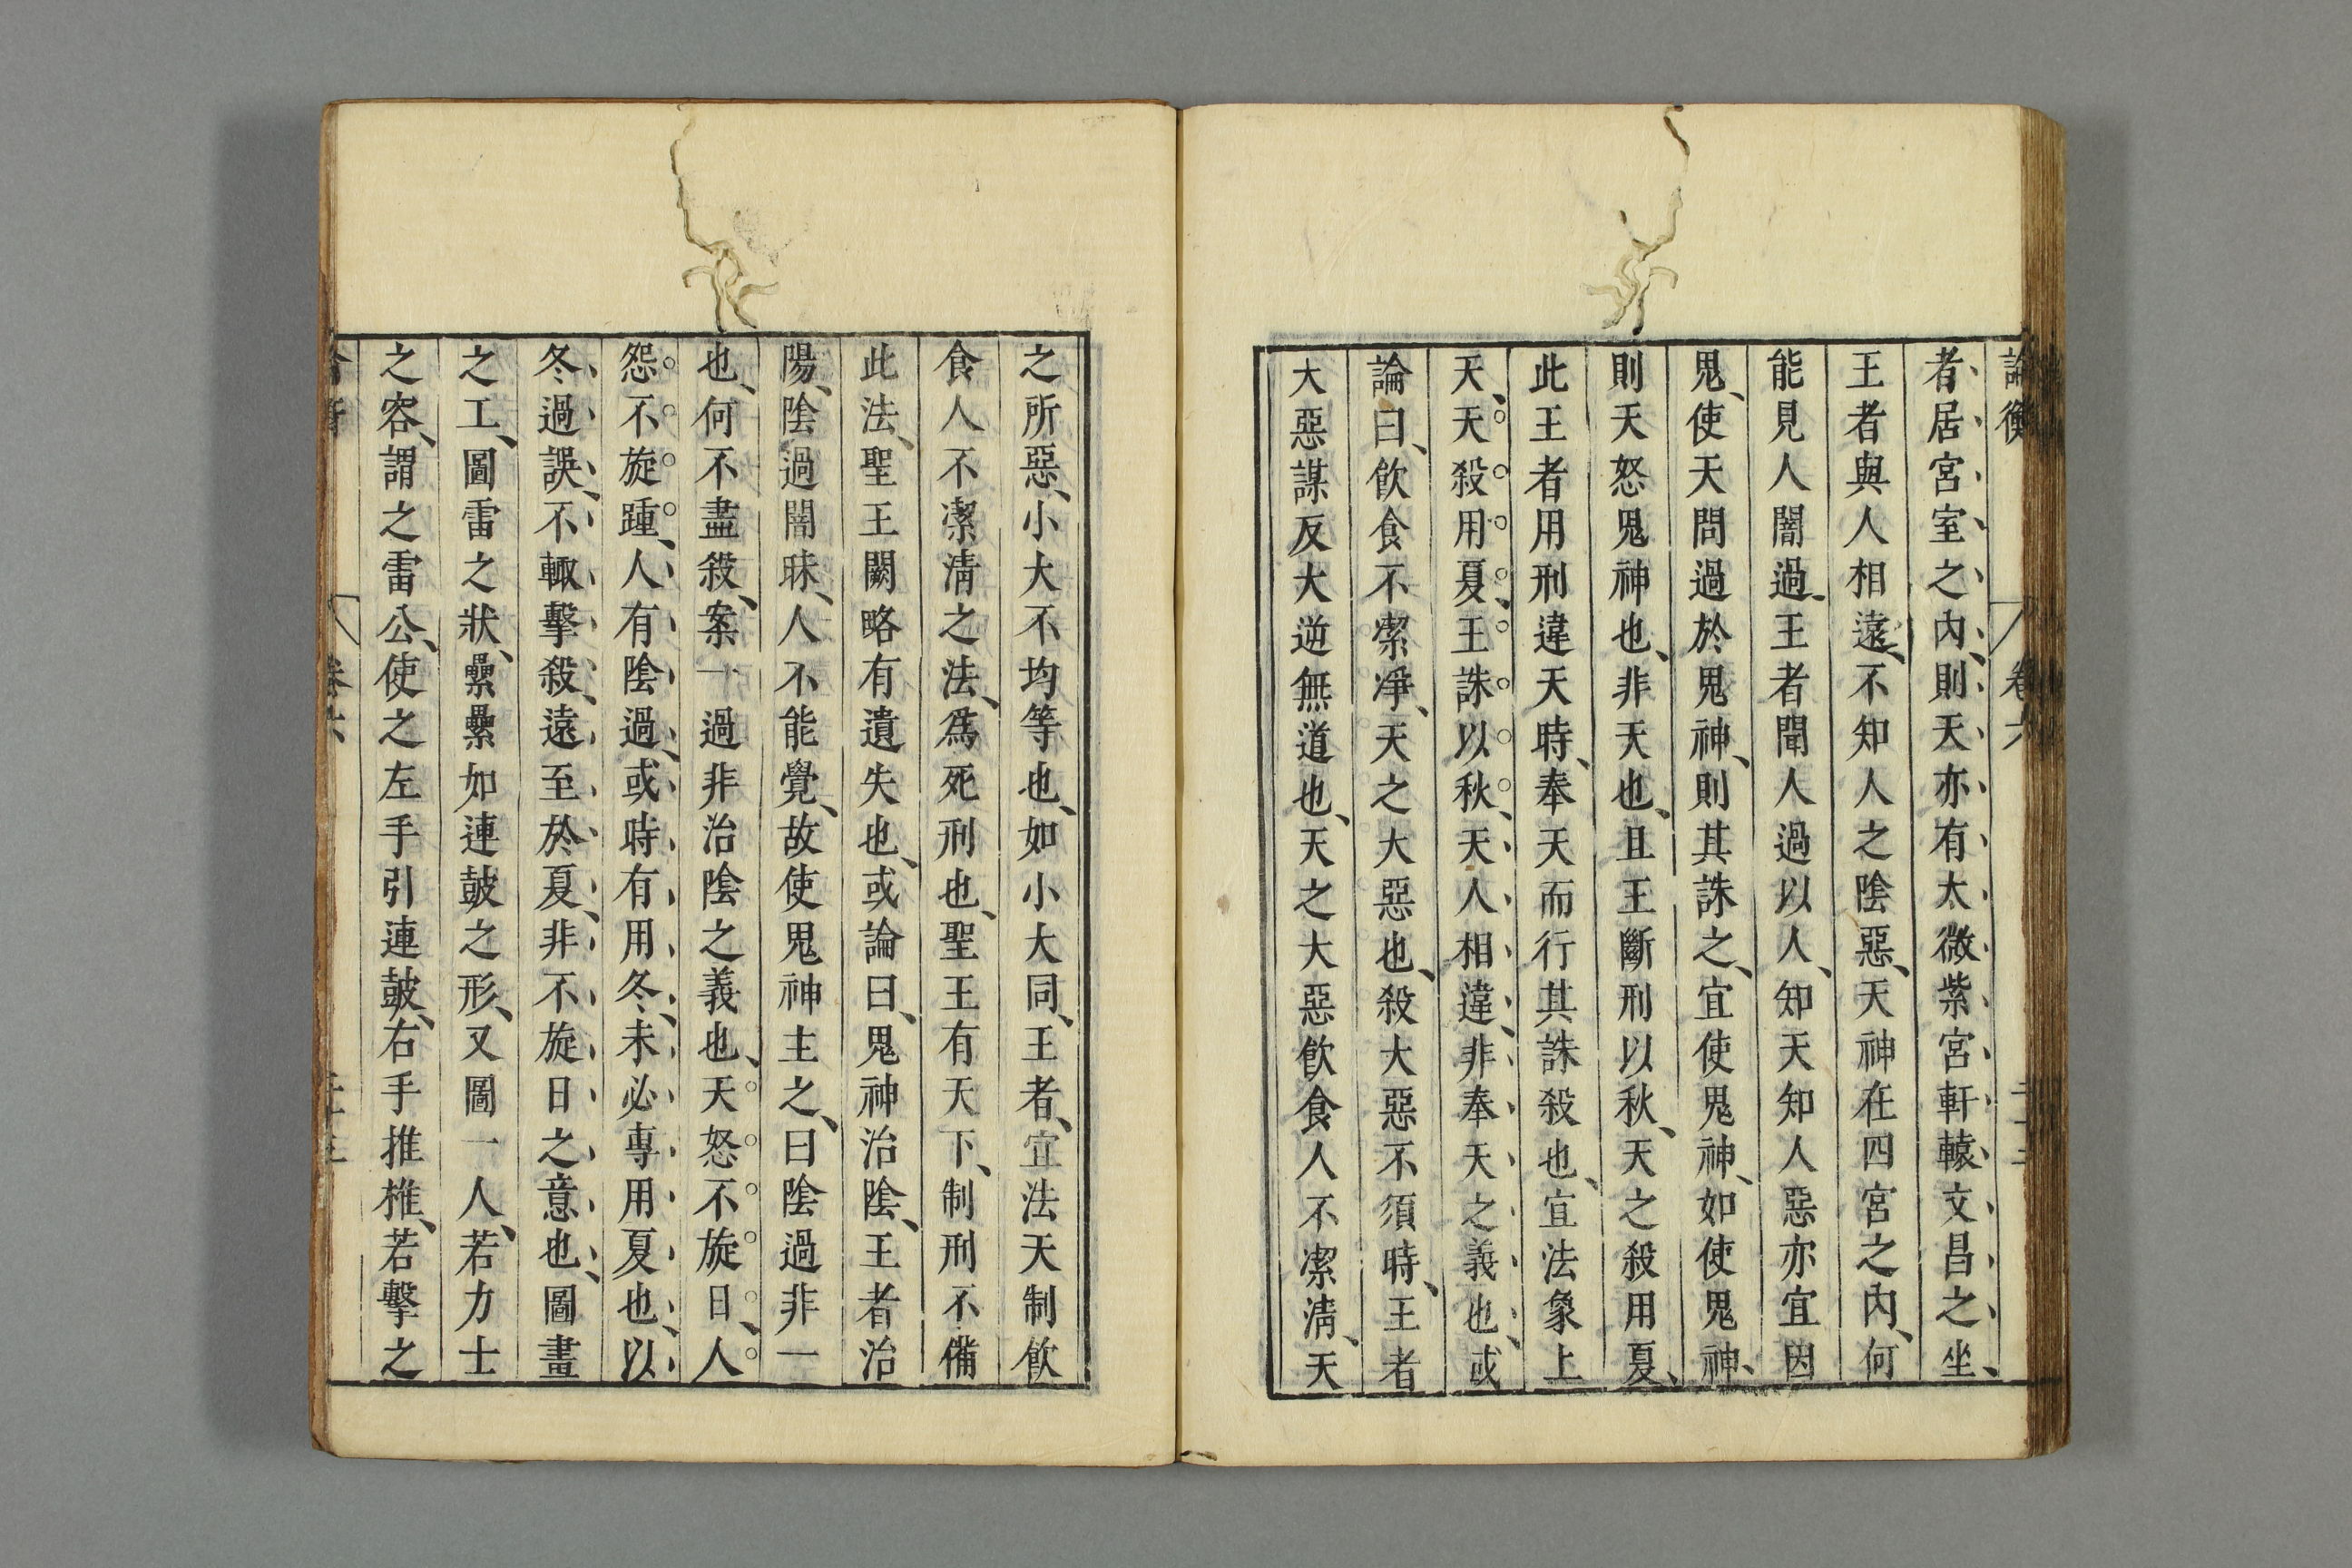 論衡 卷六
者居宮室之內、則天亦有太微紫宮軒轅文昌之坐、
王者與人相遠、不知人之陰惡、天神在四宮之內、何
能見人闇過、王者聞人過以人、知天知人惡亦宜因
鬼、使天問過於鬼神、則其誅之、宜使鬼神、如使鬼神、
則天怒鬼神也、非天也、且王斷刑以秋、天之殺用夏、
此王者用刑違天時、奉天而行其誅殺也、宜法象上
天、天殺用夏、王誅以秋、天人相違、非奉天之義也、或
論曰、飲食不潔凈、天之大惡也、殺大惡不須時、王者
大惡謀反大逆無道也、天之大惡飲食人不潔清、天
之所惡、小大不均等也、如小大同、王者、宜法天制飲
食人不潔清之法、爲死刑也、聖王有天下、制刑不備
此法、聖王闕略有遺失也、或論曰、鬼神治陰、王者治
陽、陰過闇昧、人不能覺、故使鬼神主之、曰陰過非一
也、何不盡殺、案一過非治陰之義也、天怒不旋日、人
怨不旋踵、人有陰過、或時有用冬、未必專用夏也、以
冬過誤、不輒擊殺、遠至於夏、非不旋日之意也、圖畫
之工、圖雷之狀、纍纍如連鼓之形、又圖一人、若力士
之容、謂之雷公、使之左手引連鼓、右手推椎、若擊之
卷六